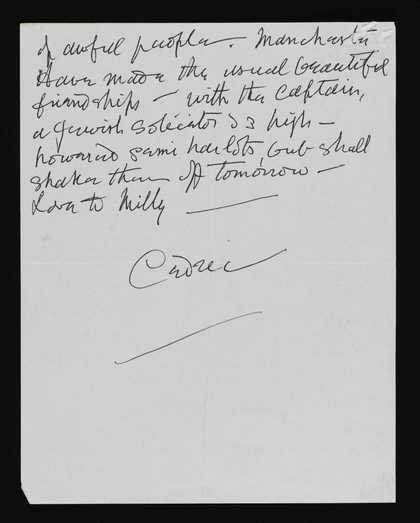 of awful people. Manchester
Have made the usual beautiful
friendships – with the Captain,
a Jewish solicitor & 3 high –
powered semi harlots, but shall
shake them off tomorrow –
Love to Milly
Cedric